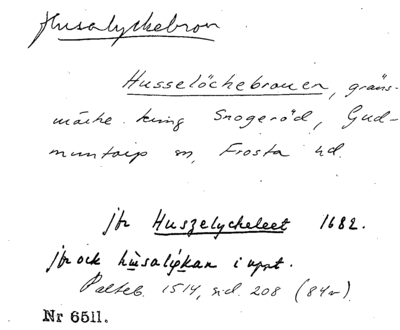 Husalyckebron
Husselöckebrouen, gräns-
märke kring Snogeröd, Gud-
muntorp sn, Frosta hd.
jfr Huszelyckeleet 1682.
jfr ock hùsalykan i uppt.
1514, sid 208 (84v)
Nr 6511.